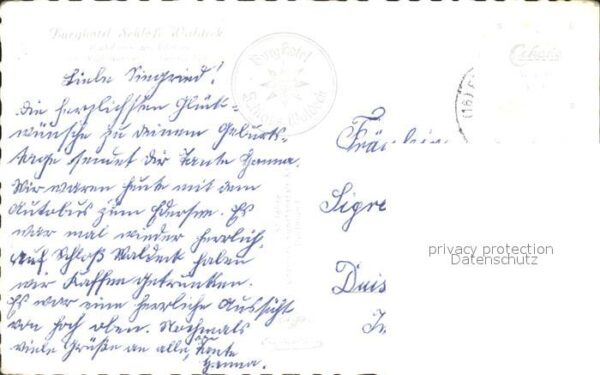 Burghotel Schloß Waldeck
Liebe Siegried!
Die herzlichsten Glück-
wünsche zu deinem Geburts-
tage sendet dir Tante Hanna.
Wir waren heute mit dem
Autobus zum Edersee. Es
war mal wieder herrlich.
Auf Schloß Waldeck haben
wir Kaffee getrunken.
Es war eine herrliche Aussicht
von hoch oben. Nochmals
viele Grüße an alle, Tante
Hanna.
Burghotel
Schloss Waldeck
(16)
Fräulein
Sigre
Duis
privacy protection
Datenschutz